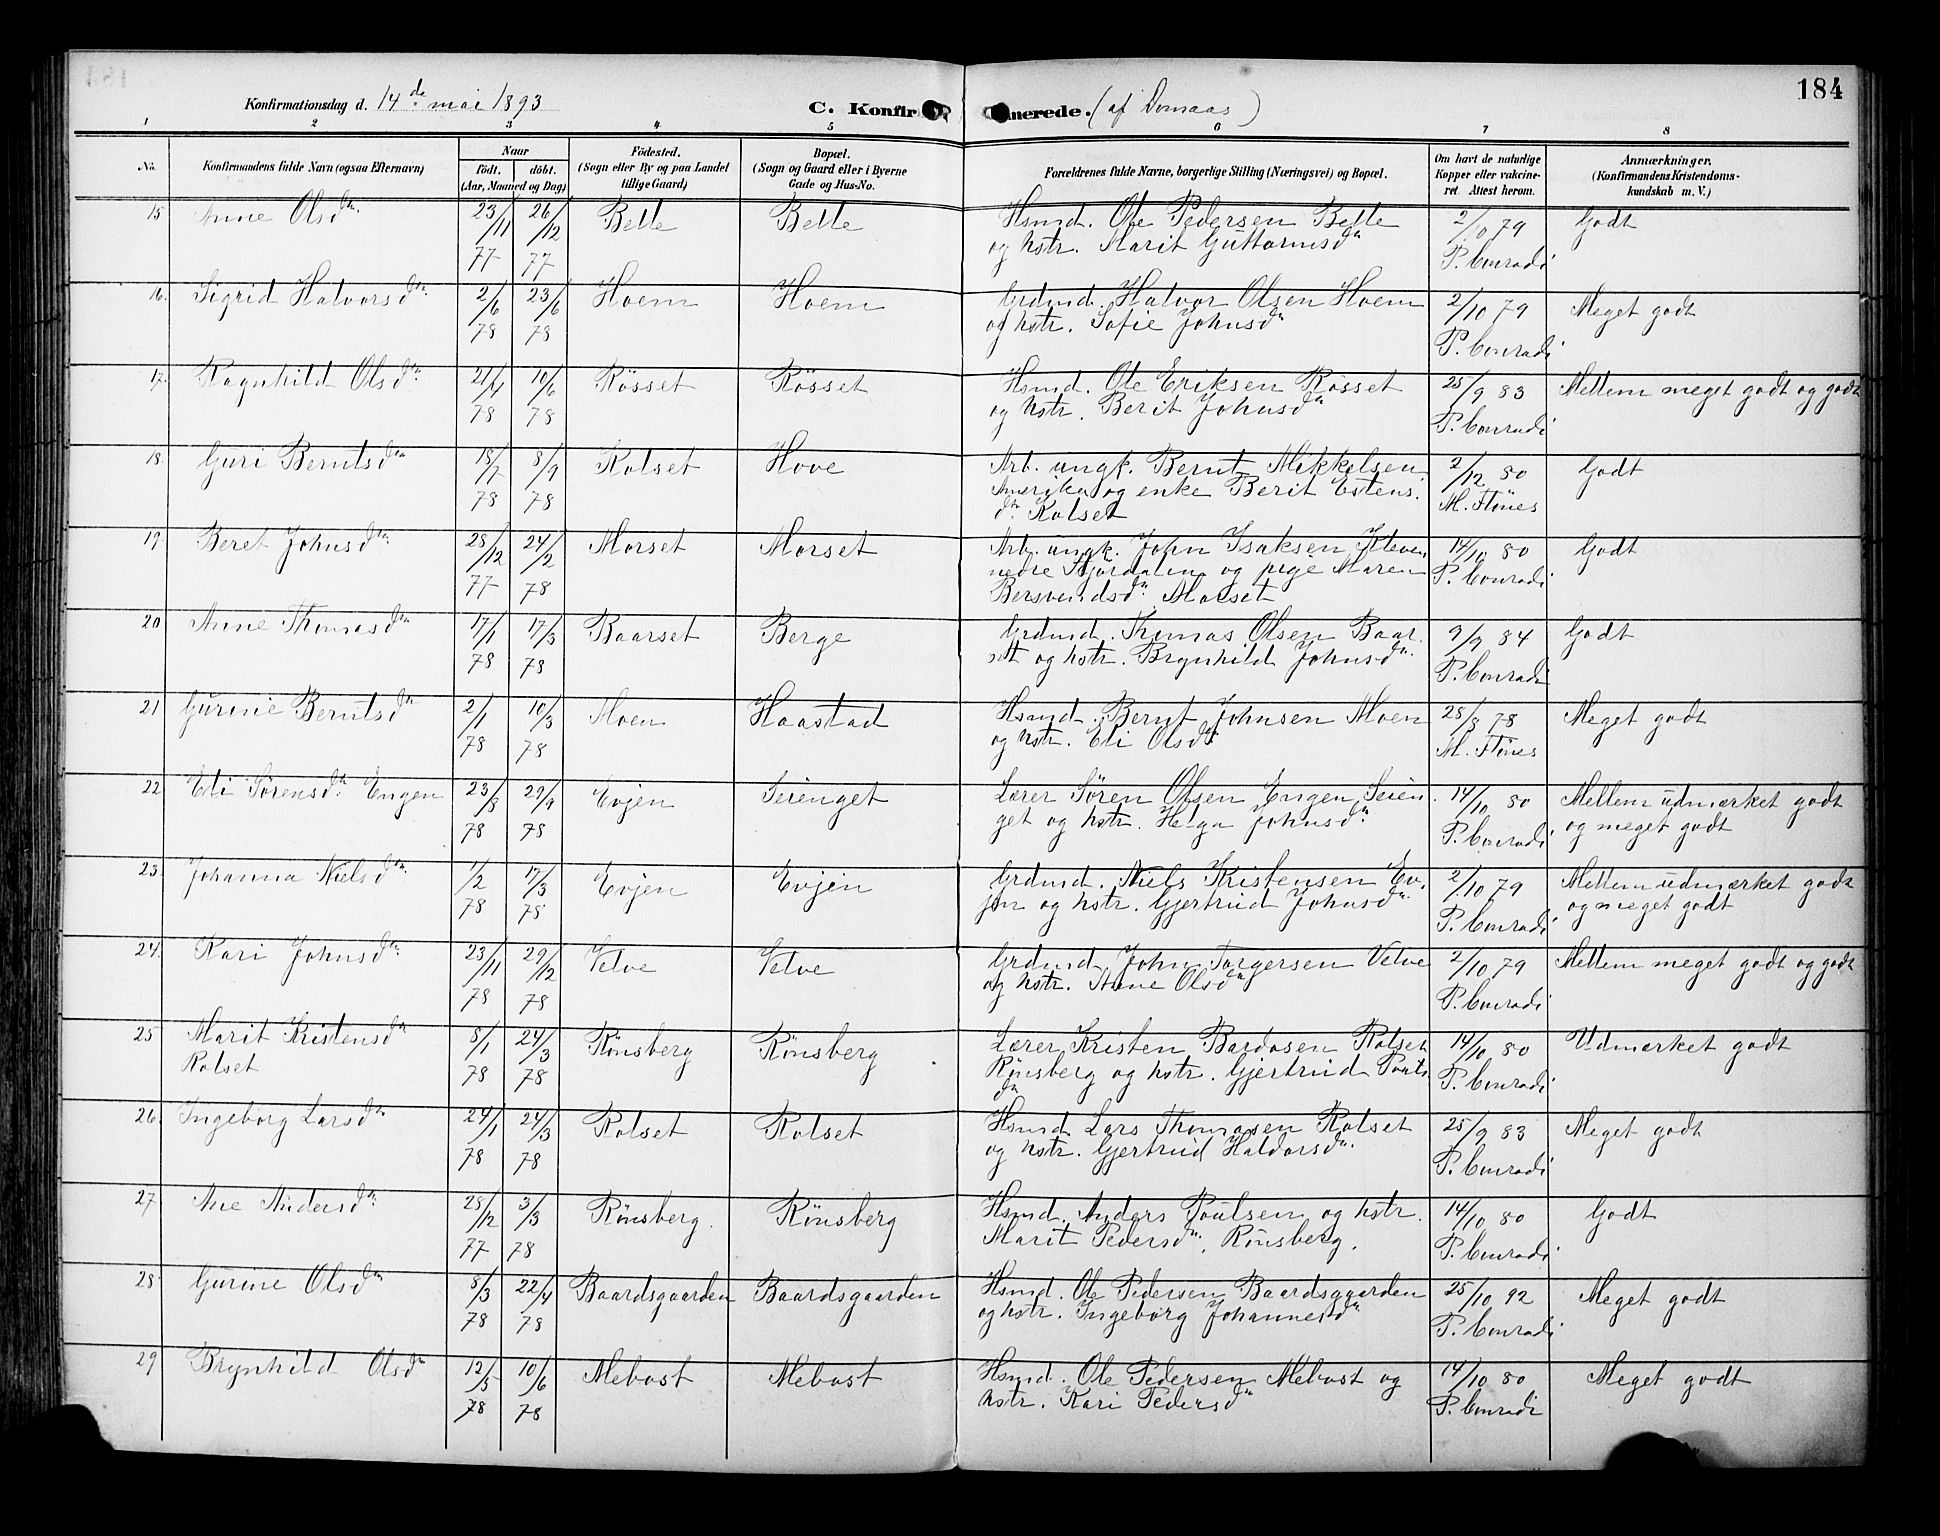 184
Konfirmationsdag d. 14de mai 1893 C. Konfirmerede. (af Domaas)
1 2 3 4 5 6 7 8
No. Konfirmandens fulde Navn (ogsaa Efternavn) Naar födt. döbt. (Aar, Maaned og Dag) Födested. (Sogn eller By og paa Landet tillige Gaard) Bopæl. (Sogn og Gaard eller i Byerne Gade og Hus-No. Forældrenes fulde Navne, borgerlige Stilling (Næringsvei) og Bopæl. Om havt de naturlige Kopper eller vakcineret. Attest herom. Anmærkninger. (Konfirmandens Kristendomskundskab m. V.)
15 Anne Olsdtr. 23/11 77 26/12 77 Belle Belle Hsmd. Ole Pedersen Belle 2/10 79 Godt
og hstr. Marit Guttormsdtr P. Conradi
16. Sigrid Halvorsdtr. 2/6 78 23/6 78 Hoem Hoem Grdmd. Halvor Olsen Hoem 2/10 79 Meget godt
og hstr. Sofie Johnsdtr P. Conradi
17. Ragnhild Olsdtr. 21/4 78 10/6 78 Rösset Rösset Hsmd. Ole Eriksen Rösset 25/9 83 Mellem meget godt og godt
og hstr. Berit Johnsdtr P. Conradi
18. Guri Berntsdtr 18/7 78 8/9 78 Rolset Hove Arb. ungk. Bernt Mikkelsen 2/12 80 Godt
Amerika og enke Berit Estens- M. Flönes
dtr. Rolset
19 Beret Johnsdtr. 28/12 77 24/2 78 Morset Morset Arb. ungk. John Isaksen Kleven 14/10 80 Godt
nedre Stjördalen og pige Maren P. Conradi
Bersvendsdtr. Morset
20 Anne Thomasdtr 17/1 78 17/3 78 Baarset Berge Grdmd. Thomas Olsen Baar- 9/9 84 Godt
set og hstr. Brynhild Johnsdtr. P. Conradi
21 Gurine Berntsdtr 2/1 78 10/3 78 Moen Haastad Hsmd. Bernt Johnsen Moen 28/8 78 Meget godt
og hstr. Eli Olsdtr M. Flönes
22 Eli Sörensdtr. Engen 23/8 78 29/9 78 Evjen Seienget Lærer Sören Olsen Engen Seien- 14/10 80 Mellem udmærket godt
get og hstr. Helga Johnsdtr. P. Conradi og meget godt
23. Johanna Nielsdtr. 1/2 78 17/3 78 Evjen Evjen Grdmd. Niels Kristensen Ev- 2/10 79 Mellem udmærket godt
jen og hstr. Gjertrud Johnsdtr. P. Conradi og meget godt
24. Kari Johnsdtr. 23/11 78 29/12 78 Velve Velve Grdmd. John Torgersen Velve 2/10 79 Mellem meget godt og godt
og hstr. Anne Olsdtr P. Conradi
25 Marit Kristensdtr 8/1 78 24/3 78 Rönsberg Rönsberg Lærer Kristen Bardosen Rolset 14/10 80 Udmærket godt
Rolset Rönsberg og hstr. Gjertrud Pouls- P. Conradi
dtr
26. Ingeborg Larsdtr 24/1 78 24/3 78 Rolset Rolset Hsmd. Lars Thomasen Rolset 25/9 83 Meget godt
og hstr. Gjertrud Haldorsdtr. P. Conradi
27 Ane Andersdtr. 28/12 77 3/3 78 Rönsberg. Rönsberg Hsmd. Anders Poulsen og hstr. 14/10 80 Godt
Marit Pedersdtr. Rönsberg. P. Conradi
28 Gurine Olsdtr 8/3 78 22/4 78 Baardsgaarden Baardsgaarden Hsmd. Ole Pedersen Baardsgaarden 25/10 92 Meget godt
og hstr. Ingeborg Johannesdtr P. Conradi
29 Brynhild Olsdtr 12/5 78 10/6 78 Mebost Mebost Hsmd. Ole Pedersen Mebost og 14/10 80 Meget godt
hstr. Kari Pedersdtr P. Conradi